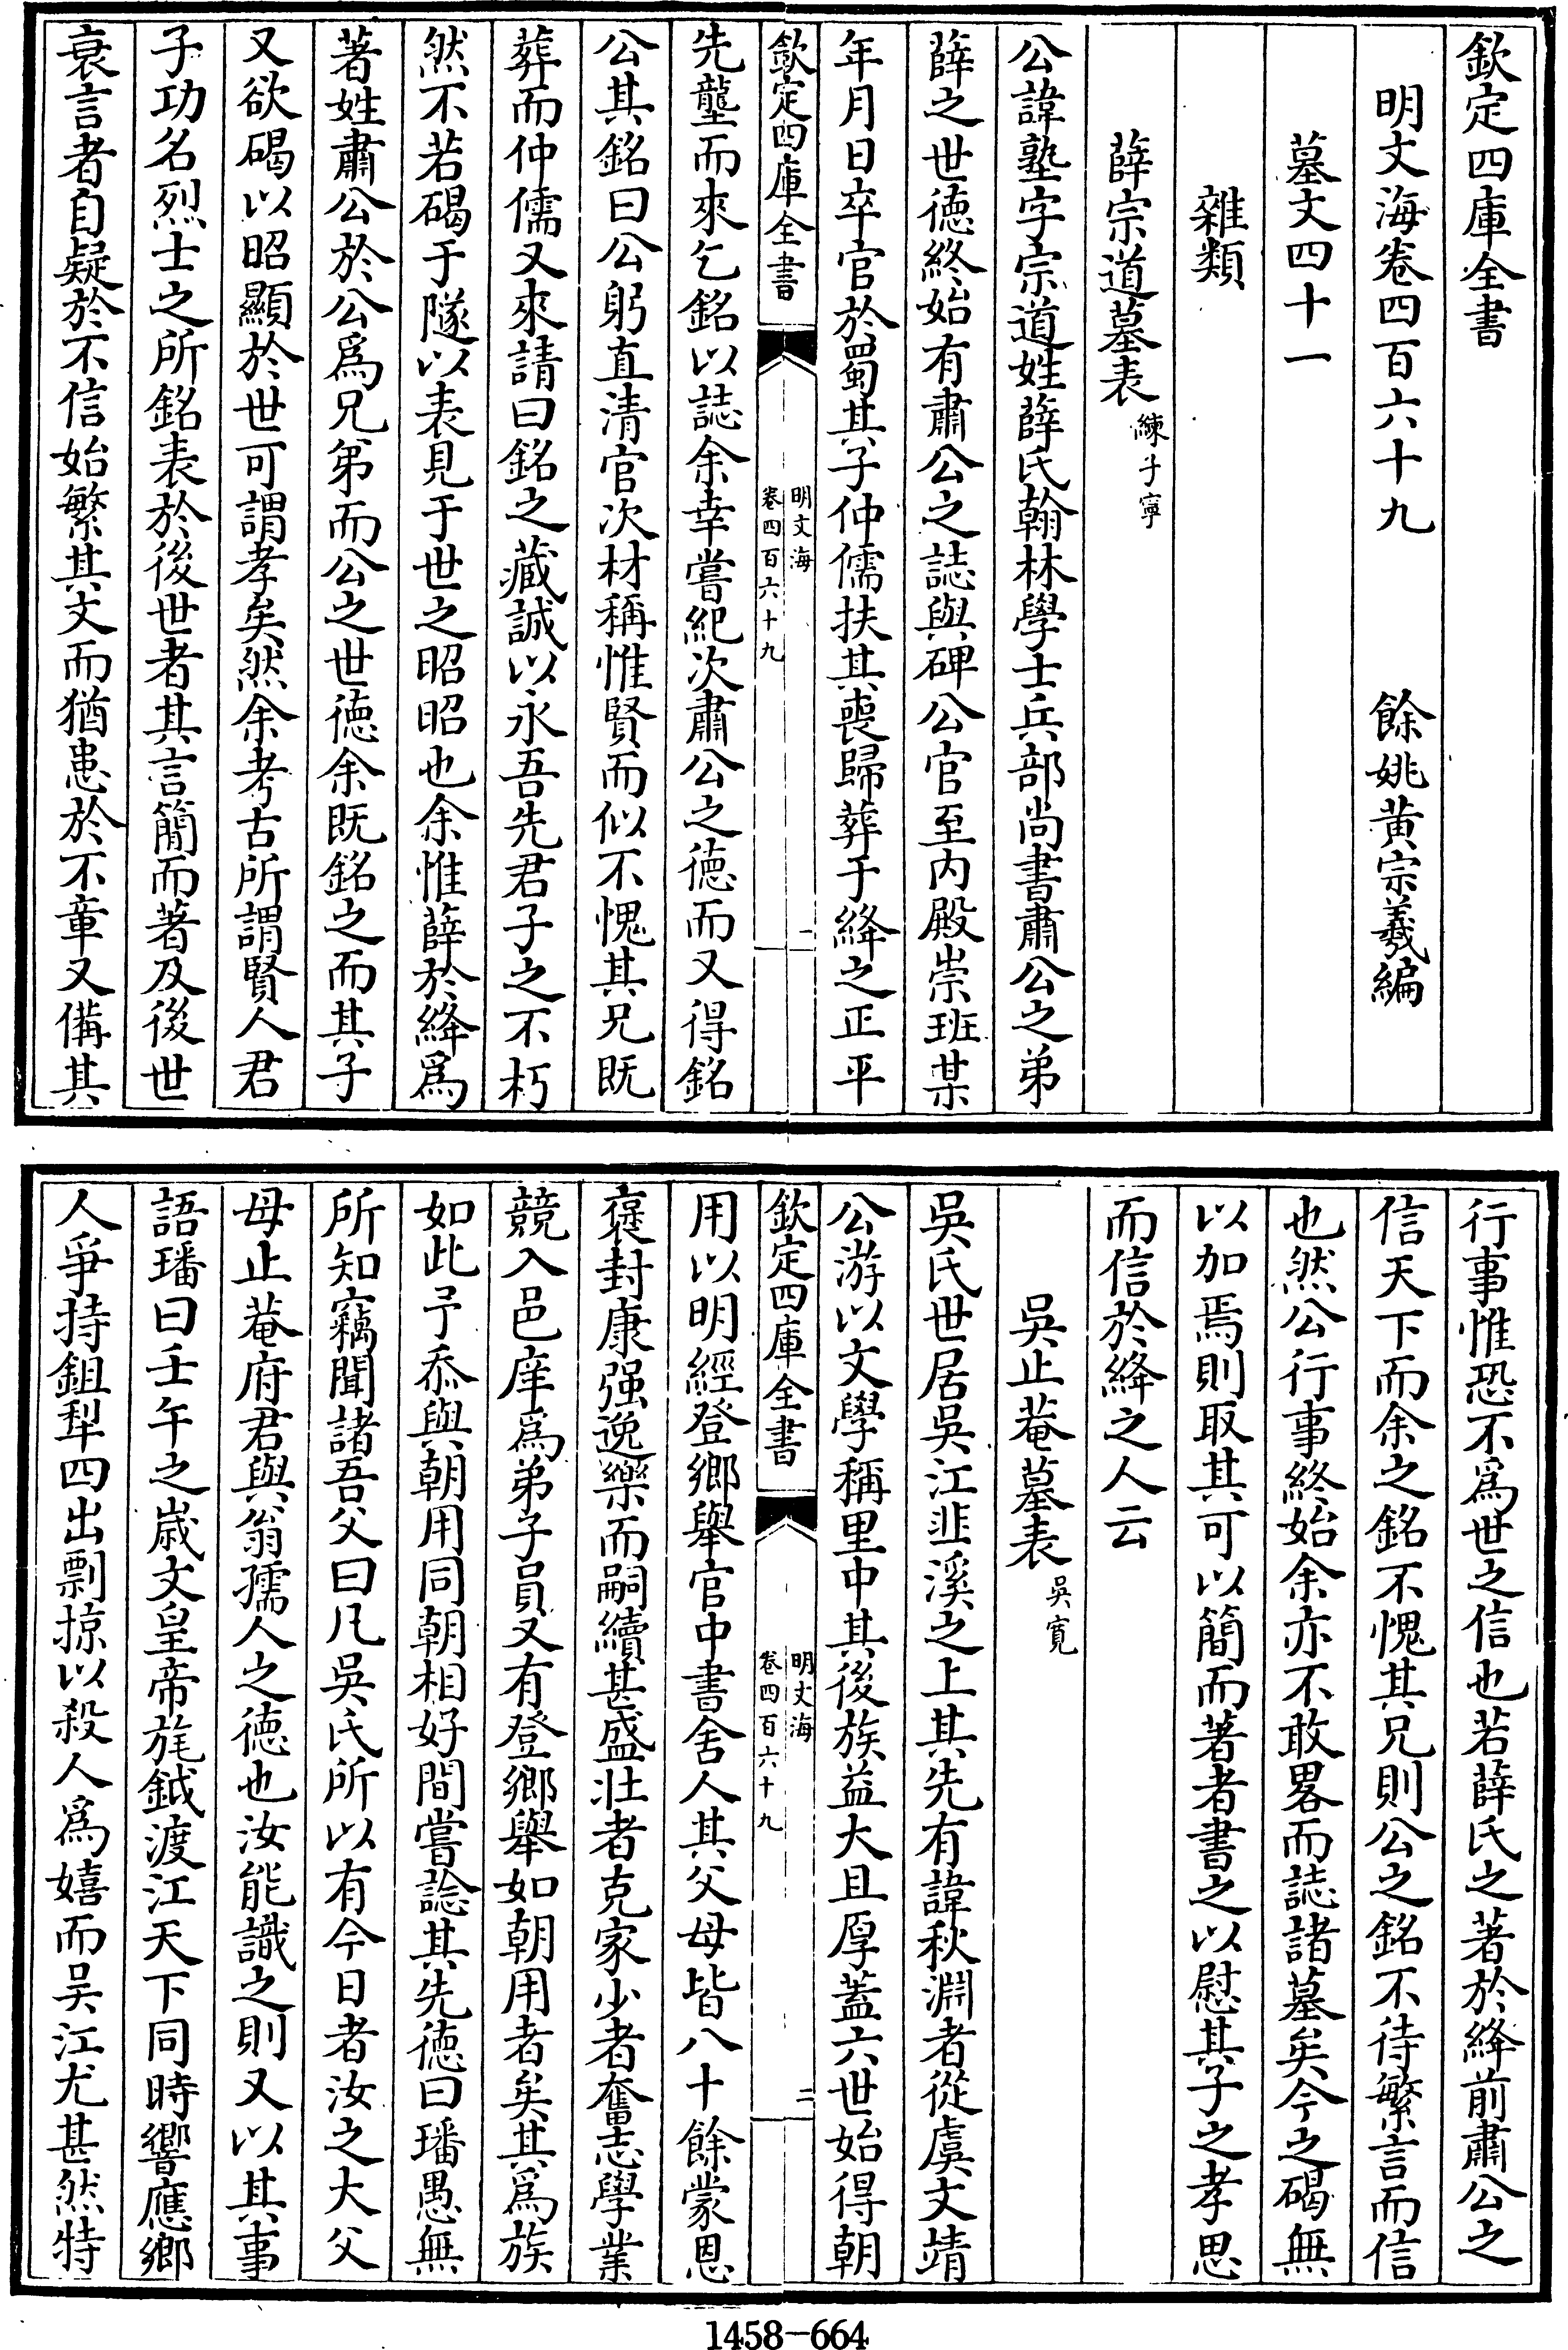 欽定四庫全書
明文海卷四百六十九　餘姚黃宗羲編
墓文四十一
雜類
薛宗道墓表 練子寧
公諱塾字宗道姓薛氏翰林學士兵部尚書肅公之弟
薛之世徳終始有肅公之誌與碑公官至内殿崇班某
年月日卒官於蜀其子仲儒扶其喪歸葬于絳之正平
欽定四庫全書
明文海
卷四百六十九
一
先壟而來乞銘以誌余幸嘗紀次肅公之徳而又得銘
公其銘曰公躬直清官次材稱惟賢而似不愧其兄既
葬而仲儒又來請曰銘之藏誠以永吾先君子之不朽
然不若碣于隧以表見于世之昭昭也余惟薛於絳爲
著姓肅公於公爲兄弟而公之世徳余既銘之而其子
又欲碣以昭顯於世可謂孝矣然余考古所謂賢人君
子功名烈士之所銘表於後世者其言簡而著及後世
衰言者自疑於不信始繁其文而猶患於不章又備其
行事惟恐不爲世之信也若薛氏之著於絳前肅公之
信天下而余之銘不愧其兄則公之銘不待繁言而信
也然公行事終始余亦不敢畧而誌諸墓矣今之碣無
以加焉則取其可以簡而著者書之以慰其子之孝思
而信於絳之人云
吳止菴墓表 吳寛
吳氏世居吳江韭溪之上其先有諱秋淵者從虞文靖
公游以文學稱里中其後族益大且厚蓋六世始得朝
欽定四庫全書
明文海
卷四百六十九
二
用以明經登鄉舉官中書舍人其父母皆八十餘蒙恩
褒封康强逸樂而嗣續甚盛壯者克家少者奮志學業
競入邑庠爲弟子員又有登鄉舉如朝用者矣其爲族
如此予忝與朝用同朝相好間嘗諗其先徳曰璠愚無
所知竊聞諸吾父曰凡吳氏所以有今日者汝之大父
母止菴府君與翁孺人之徳也汝能識之則又以其事
語璠曰壬午之歳文皇帝旄鉞渡江天下同時響應鄉
人爭持鉏犁四出剽掠以殺人爲嬉而吳江尤甚然特
1458-664